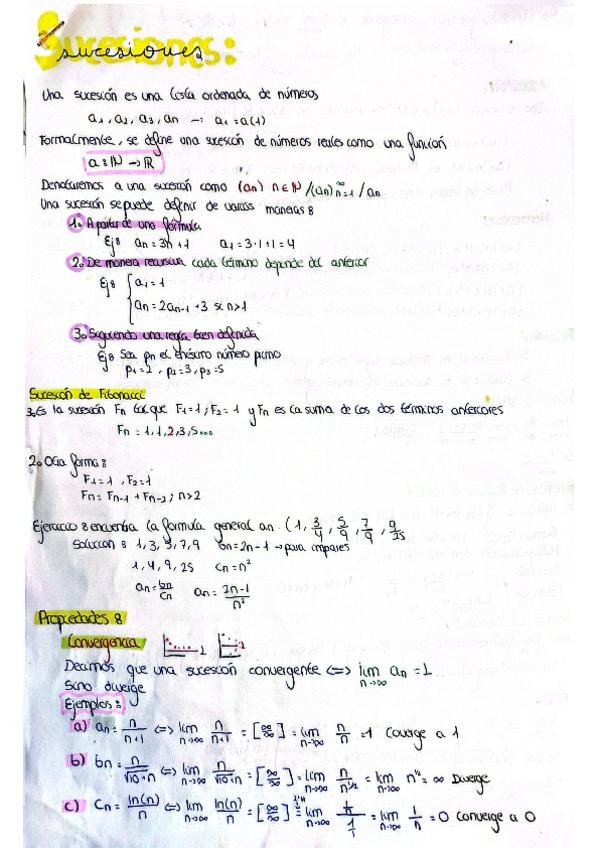 Sucesiones:
sucesiones
Una sucesión es una lista ordenada de números
a1, a2, a3, an → a1 = a(1)
Formalmente, se define una sucesión de números reales como una función
a: ℕ → ℝ
Denotaremos a una sucesión como (an) n∈ℕ /(an)∞n=1 / an
Una sucesión se puede definir de varias maneras:
1. A partir de una fórmula
Ej: an = 3n + 1 a1 = 3·1+1 = 4
2. De manera recursiva cada término depende del anterior
Ej: { a1 = 1
an = 2an-1 + 3 si n>1
3. Siguiendo una regla bien definida
Ej: Sea pn el enésimo número primo
p1=2, p2=3, p3=5
Sucesión de Fibonacci
3. Es la sucesión Fn tal que F1=1, F2=1 y Fn es la suma de los dos términos anteriores
Fn = 1, 1, 2, 3, 5...
2. Otra forma:
F1=1, F2=1
Fn = Fn-1 + Fn-2; n>2
Ejercicio: encuentra la formula general an. (1, 3/4, 5/9, 7/9, 9/25
Solucion: 1, 3, 5, 7, 9 bn = 2n-1 → para impares
1, 4, 9, 25 cn = n²
an = bn/cn an = 2n-1/n²
Propiedades:
Convergencia 1 1
Decimos que una sucesión convergente <=> lim n→∞ an = 1
Sino diverge
Ejemplos:
a) an = n/n+1 <=> lim n→∞ n/n+1 = [∞/∞] = lim n→∞ n/n = 1 Coverge a 1
b) bn = n/√10+n <=> lim n→∞ n/√10+n = [∞/∞] = lim n→∞ n/n^1/2 = lim n→∞ n^1/2 = ∞ Diverge
c) Cn = ln(n)/n <=> lim n→∞ ln(n)/n = [∞/∞] = L'H lim n→∞ 1/n/1 = lim n→∞ 1/n = 0 converge a 0